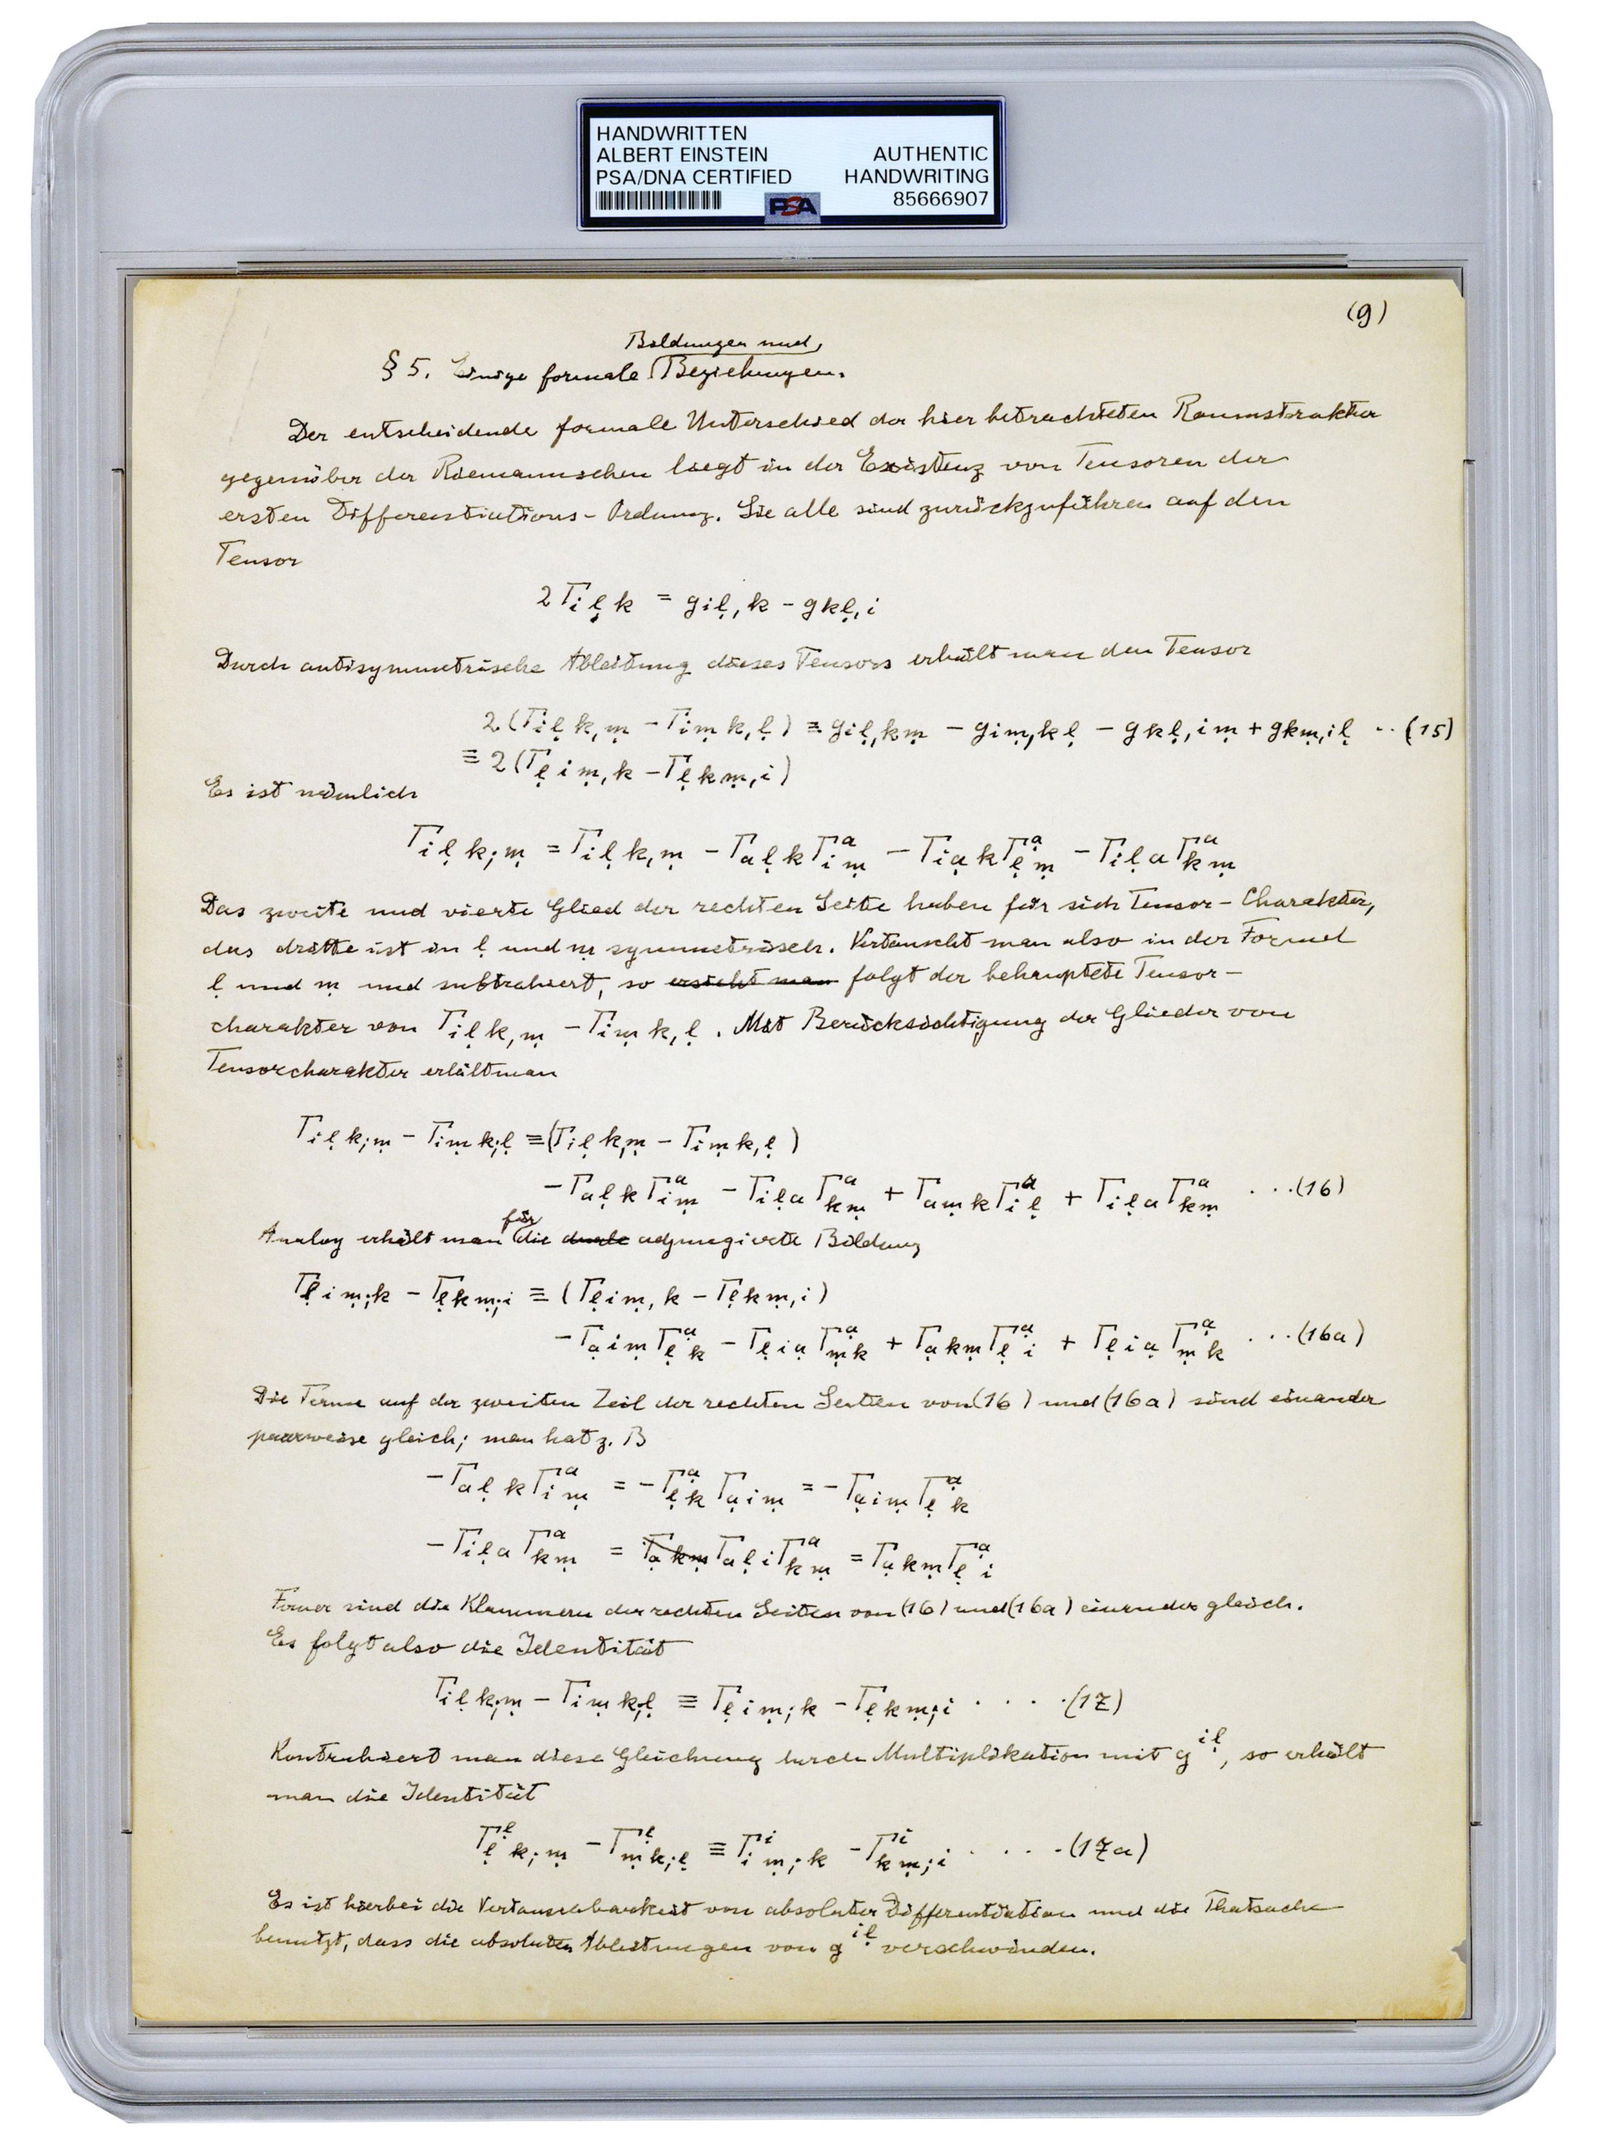 HANDWRITTEN
ALBERT EINSTEIN AUTHENTIC
PSA/DNA CERTIFIED HANDWRITING
PSA 85666907
(9)
Bildungen und
§ 5. Einige formale Beziehungen.
Der entscheidende formale Unterschied der hier betrachteten Raumstruktur
gegenüber der Riemannschen liegt in der Existenz von Tensoren der
ersten Differentiations-Ordnung. Sie alle sind zurückzuführen auf den
Tensor
2 Γ_{i ḷ k} = g_{i ḷ, k} - g_{k ḷ, i}
Durch antisymmetrische Ableitung dieses Tensors erhält man den Tensor
2 (Γ_{i ḷ k, ṃ} - Γ_{i ṃ k, ḷ}) ≡ g_{i ḷ, k ṃ} - g_{i ṃ, k ḷ} - g_{k ḷ, i ṃ} + g_{k ṃ, i ḷ} ·· (15)
≡ 2 (Γ_{ḷ i ṃ, k} - Γ_{ḷ k ṃ, i})
Es ist nämlich
Γ_{i ḷ k; ṃ} = Γ_{i ḷ k, ṃ} - Γ_{a ḷ k} Γ_{i ṃ}^{a} - Γ_{i ạ k} Γ_{ḷ ṃ}^{ạ} - Γ_{i ḷ a} Γ_{k ṃ}^{a}
Das zweite und vierte Glied der rechten Seite haben für sich Tensor-Charakter,
das dritte ist in ḷ und ṃ symmetrisch. Vertauscht man also in der Formel
ḷ und ṃ und subtrahiert, so ersieht man folgt der behauptete Tensor-
charakter von Γ_{i ḷ k, ṃ} - Γ_{i ṃ k, ḷ}. Mit Berücksichtigung der Glieder von
Tensorcharakter erhält man
Γ_{i ḷ k; ṃ} - Γ_{i ṃ k; ḷ} ≡ (Γ_{i ḷ k, ṃ} - Γ_{i ṃ k, ḷ})
- Γ_{a ḷ k} Γ_{i ṃ}^{a} - Γ_{i ḷ a} Γ_{k ṃ}^{a} + Γ_{a ṃ k} Γ_{i ḷ}^{a} + Γ_{i ḷ a} Γ_{k ṃ}^{a} ···(16)
für
Analog erhält man die duale adjungierte Bildung
Γ_{ḷ i ṃ; k} - Γ_{ḷ k ṃ; i} ≡ (Γ_{ḷ i ṃ, k} - Γ_{ḷ k ṃ, i})
- Γ_{ạ i ṃ} Γ_{ḷ k}^{ạ} - Γ_{ḷ i ạ} Γ_{ṃ k}^{ạ} + Γ_{ạ k ṃ} Γ_{ḷ i}^{ạ} + Γ_{ḷ i ạ} Γ_{ṃ k}^{ạ} ···(16a)
Die Terme auf der zweiten Zeil der rechten Seiten von (16) und (16a) sind einander
paarweise gleich; man hat z. B
- Γ_{a ḷ k} Γ_{i ṃ}^{a} = - Γ_{ḷ k}^{ạ} Γ_{ạ i ṃ} = - Γ_{ạ i ṃ} Γ_{ḷ k}^{ạ}
- Γ_{i ḷ a} Γ_{k ṃ}^{a} = Γ_{ạ k ṃ} Γ_{a ḷ i} Γ_{k ṃ}^{a} = Γ_{ạ k ṃ} Γ_{ḷ i}^{ạ}
Ferner sind die Klammern der rechten Seiten von (16) und (16a) einander gleich.
Es folgt also die Identität
Γ_{i ḷ k; ṃ} - Γ_{i ṃ k; ḷ} ≡ Γ_{ḷ i ṃ; k} - Γ_{ḷ k ṃ; i} · · · · (17)
Kontrahiert man diese Gleichung durch Multiplikation mit g^{i ḷ}, so erhält
man die Identität
Γ_{ḷ k; ṃ}^{ḷ} - Γ_{ṃ k; ḷ}^{ḷ} ≡ Γ_{i ṃ; k}^{i} - Γ_{k ṃ; i}^{i} · · · · (17a)
Es ist hierbei die Vertauschbarkeit von absoluter Differentiation und die Thatsache
benutzt, dass die absoluten Ableitungen von g^{i ḷ} verschwinden.